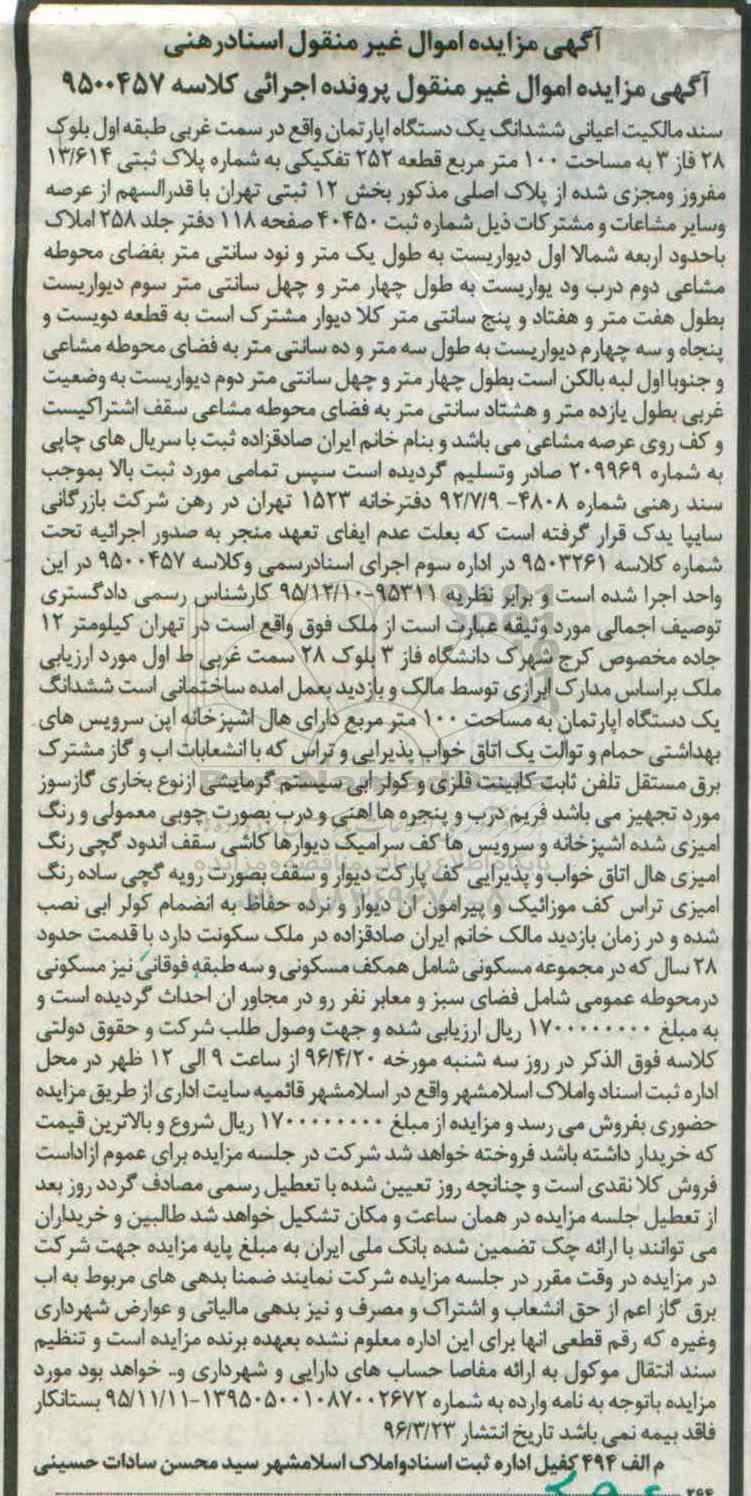 آگهی مزایده اموال غیر منقول اسنادرهنی
آگهی مزایده اموال غیر منقول پرونده اجرائی کلاسه ۹۵۰۰۴۵۷
سند مالکیت اعیانی ششدانگ یک دستگاه اپارتمان واقع در سمت غربی طبقه اول بلوک
۲۸ فاز ۳ به مساحت ۱۰۰ متر مربع قطعه ۲۵۲ تفکیکی به شماره پلاک ثبتی ۱۳/۶۱۴
مفروز ومجزی شده از پلاک اصلی مذکور بخش ۱۲ ثبتی تهران با قدرالسهم از عرصه
وسایر مشاعات و مشترکات ذیل شماره ثبت ۴۰۴۵۰ صفحه ۱۱۸ دفتر جلد ۲۵۸ املاک
باحدود اربعه شمالا اول دیواریست به طول یک متر و نود سانتی متر بفضای محوطه
مشاعی دوم درب ود یواریست به طول چهار متر و چهل سانتی متر سوم دیواریست
بطول هفت متر و هفتاد و پنج سانتی متر کلا دیوار مشترک است به قطعه دویست و
پنجاه و سه چهارم دیواریست به طول سه متر و ده سانتی متر به فضای محوطه مشاعی
و جنوبا اول لبه بالکن است بطول چهار متر و چهل سانتی متر دوم دیواریست به وضعیت
غربی بطول یازده متر و هشتاد سانتی متر به فضای محوطه مشاعی سقف اشتراکیست
و کف روی عرصه مشاعی می باشد و بنام خانم ایران صادقزاده ثبت با سریال های چاپی
به شماره ۲۰۹۹۶۹ صادر وتسلیم گردیده است سپس تمامی مورد ثبت بالا بموجب
سند رهنی شماره ۴۸۰۸- ۹۲/۷/۹ دفترخانه ۱۵۲۳ تهران در رهن شرکت بازرگانی
سایپا یدک قرار گرفته است که بعلت عدم ایفای تعهد منجر به صدور اجرائیه تحت
شماره کلاسه ۹۵۰۳۲۶۱ در اداره سوم اجرای اسنادرسمی وکلاسه ۹۵۰۰۴۵۷ در این
واحد اجرا شده است و برابر نظریه ۹۵۳۱۱-۹۵/۱۲/۱۰ کارشناس رسمی دادگستری
توصیف اجمالی مورد وثیقه عبارت است از ملک فوق واقع است در تهران کیلومتر ۱۲
جاده مخصوص کرج شهرک دانشگاه فاز ۳ بلوک ۲۸ سمت غربی ط اول مورد ارزیابی
ملک براساس مدارک ابرازی توسط مالک و بازدید بعمل امده ساختمانی است ششدانگ
یک دستگاه اپارتمان به مساحت ۱۰۰ متر مربع دارای هال اشپزخانه اپن سرویس های
بهداشتی حمام و توالت یک اتاق خواب پذیرایی و تراس که با انشعابات اب و گاز مشترک
برق مستقل تلفن ثابت کابینت فلزی و کولر ابی سیستم گرمایشی ازنوع بخاری گازسوز
مورد تجهیز می باشد فریم درب و پنجره ها اهنی و درب بصورت چوبی معمولی و رنگ
امیزی شده اشپزخانه و سرویس ها کف سرامیک دیوارها کاشی سقف اندود گچی رنگ
امیزی هال اتاق خواب و پذیرایی کف پارکت دیوار و سقف بصورت رویه گچی ساده رنگ
امیزی تراس کف موزائیک و پیرامون ان دیوار و نرده حفاظ به انضمام کولر ابی نصب
شده و در زمان بازدید مالک خانم ایران صادقزاده در ملک سکونت دارد با قدمت حدود
۲۸ سال که در مجموعه مسکونی شامل همکف مسکونی و سه طبقه فوقانی نیز مسکونی
درمحوطه عمومی شامل فضای سبز و معابر نفر رو در مجاور ان احداث گردیده است و
به مبلغ ۱۷۰۰۰۰۰۰۰۰ ریال ارزیابی شده و جهت وصول طلب شرکت و حقوق دولتی
کلاسه فوق الذکر در روز سه شنبه مورخه ۹۶/۴/۲۰ از ساعت ۹ الی ۱۲ ظهر در محل
اداره ثبت اسناد واملاک اسلامشهر واقع در اسلامشهر قائمیه سایت اداری از طریق مزایده
حضوری بفروش می رسد و مزایده از مبلغ ۱۷۰۰۰۰۰۰۰۰ ریال شروع و بالاترین قیمت
که خریدار داشته باشد فروخته خواهد شد شرکت در جلسه مزایده برای عموم ازاداست
فروش کلا نقدی است و چنانچه روز تعیین شده با تعطیل رسمی مصادف گردد روز بعد
از تعطیل جلسه مزایده در همان ساعت و مکان تشکیل خواهد شد طالبین و خریداران
می توانند با ارائه چک تضمین شده بانک ملی ایران به مبلغ پایه مزایده جهت شرکت
در مزایده در وقت مقرر در جلسه مزایده شرکت نمایند ضمنا بدهی های مربوط به اب
برق گاز اعم از حق انشعاب و اشتراک و مصرف و نیز بدهی مالیاتی و عوارض شهرداری
وغیره که رقم قطعی انها برای این اداره معلوم نشده بعهده برنده مزایده است و تنظیم
سند انتقال موکول به ارائه مفاصا حساب های دارایی و شهرداری و.. خواهد بود مورد
مزایده باتوجه به نامه وارده به شماره ۱۳۹۵۰۵۰۰۱۰۸۷۰۰۲۶۷۲-۹۵/۱۱/۱۱ بستانکار
فاقد بیمه نمی باشد تاریخ انتشار ۹۶/۳/۲۳
م الف ۴۹۴ کفیل اداره ثبت اسنادواملاک اسلامشهر سید محسن سادات حسینی